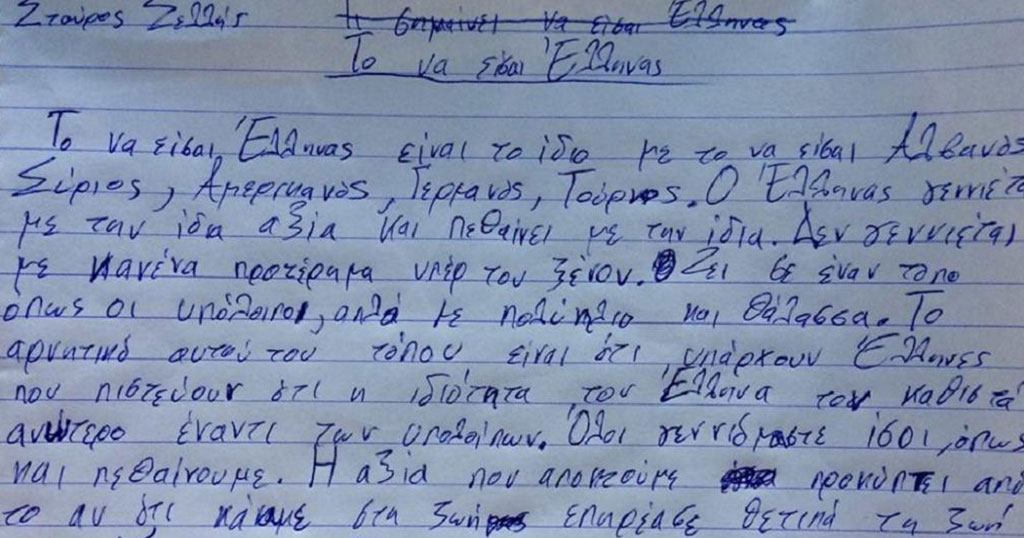 Σταύρος Ζελλής
Τι σημαίνει να είσαι Έλληνας
Το να είσαι Έλληνας
Το να είσαι Έλληνας είναι το ίδιο με το να είσαι Αλβανός
Σύριος, Αμερικανός, Γερμανός, Τούρκος. Ο Έλληνας γεννιέτα
με την ίδια αξία και πεθαίνει με την ίδια. Δεν γεννιέται
με κανένα προτέραμα υπέρ του ξένου. Ζει σε έναν τόπο
όπως οι υπόλοιποι, απλά με πολύ ήλιο και θάλασσα. Το
αρνητικό αυτού του τόπου είναι ότι υπάρχουν Έλληνες
που πιστεύουν ότι η ιδιότητα του Έλληνα τον καθιστά
ανώτερο έναντι των υπολοίπων. Όλοι γεννιόμαστε ίσοι, όπως
και πεθαίνουμε. Η αξία που αποκτούμε προκύπτει από
το αν ότι κάναμε στη ζωή επηρέασε θετικά τη ζωή